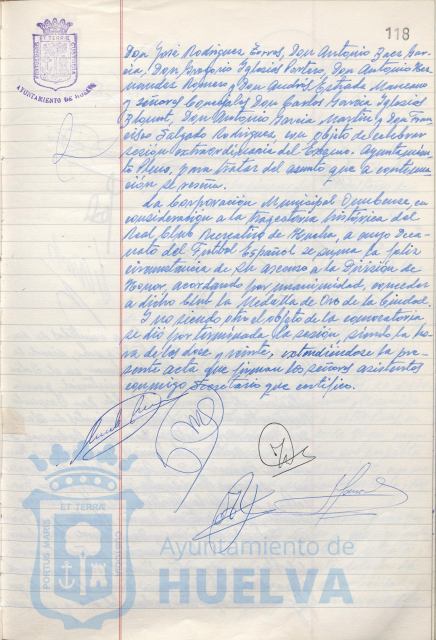 118
AYUNTAMIENTO DE HUELVA
Don José Rodríguez Don Antonio Baez Gar-
cía, Don Gregorio Iglesias Portero, Don Antonio Her-
nandez Romero y Don Andrés Estrada Manzano
y señores Concejales Don Carlos García Iglesias
Don Antonio García Martín y Don Fran-
cisco Salgado Rodríguez, con objeto de celebrar
sesión extraordinaria del Excmo. Ayuntamien-
to Pleno, para tratar del asunto que a continua-
ción se reseña.
La Corporación Municipal Onubense, en
consideración a la trayectoria histórica del
Real Club Recreativo de Huelva, a cuyo Deca-
nato del Futbol Español se suma la feliz
circunstancia de su ascenso a la División de
Honor, acordando por unanimidad, conceder
a dicho Club la Medalla de Oro de la Ciudad.
Y no siendo otro el objeto de la convocatoria
se dió por terminada la sesión, siendo la ho-
ra de las doce y veinte, extendiéndose la pre-
sente acta que firman los señores asistentes
conmigo Secretario que certifico.
ET TERRÆ
PORTUS MARIS
CUSTODIA
Ayuntamiento de
HUELVA